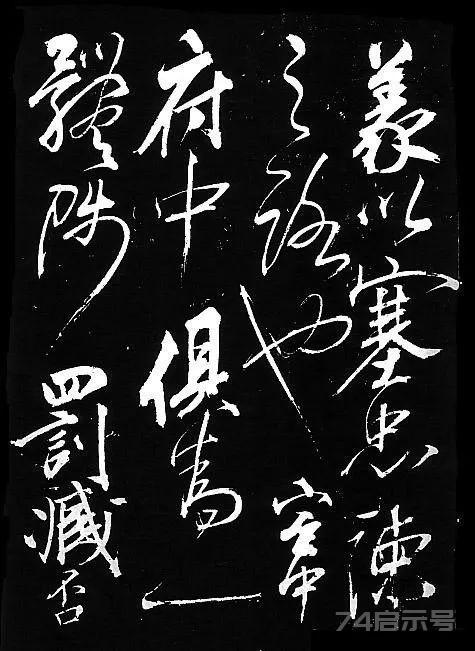 義以塞忠諫
之路也宮中
府中俱為一
體陟罰臧否
74启示号